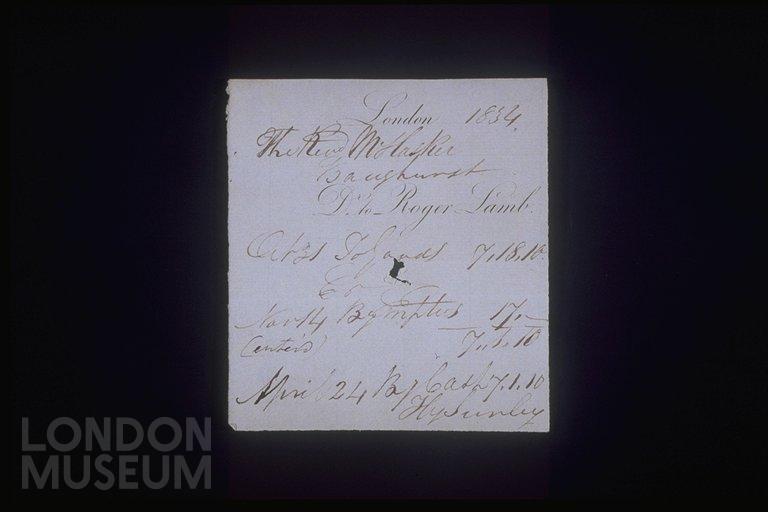 London 1834
The Revd Mr Hasker
Baughurst
Dr. to Roger Lamb.
Oct 31 To Goods 7.18.10
Cr
Nov 14 By Empties 17.-
7.1.10
April 24 By Cash 7.1.10
Hy Sunley
LONDON
MUSEUM